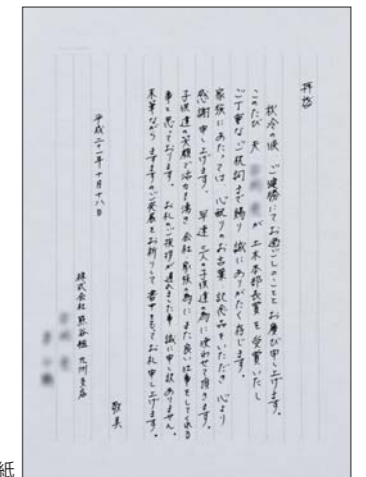 拝啓
秋冷の候 ご健勝にてお過ごしのこととお慶び申し上げます。
このたび 夫 が 土木本部長賞を受賞いたし
ご丁重なご祝詞まで賜り 誠にありがたく存じます。
家族にあたっては 心配りのお言葉 記念品をいただき 心より
感謝申し上げます。 早速 三人の子供達の為に使わせて頂きます。
子供達の笑顔で活力も湧き 会社 家族の為にまた良い仕事をしてくれる
事と思っております。 お礼のご挨拶が遅れました事 誠に申し訳ありません。
末筆ながら ますますのご発展をお祈りして 書中をもってお礼申し上げます。
敬具
平成二十一年十月十八日
株式会社熊谷組 九州支店
紙